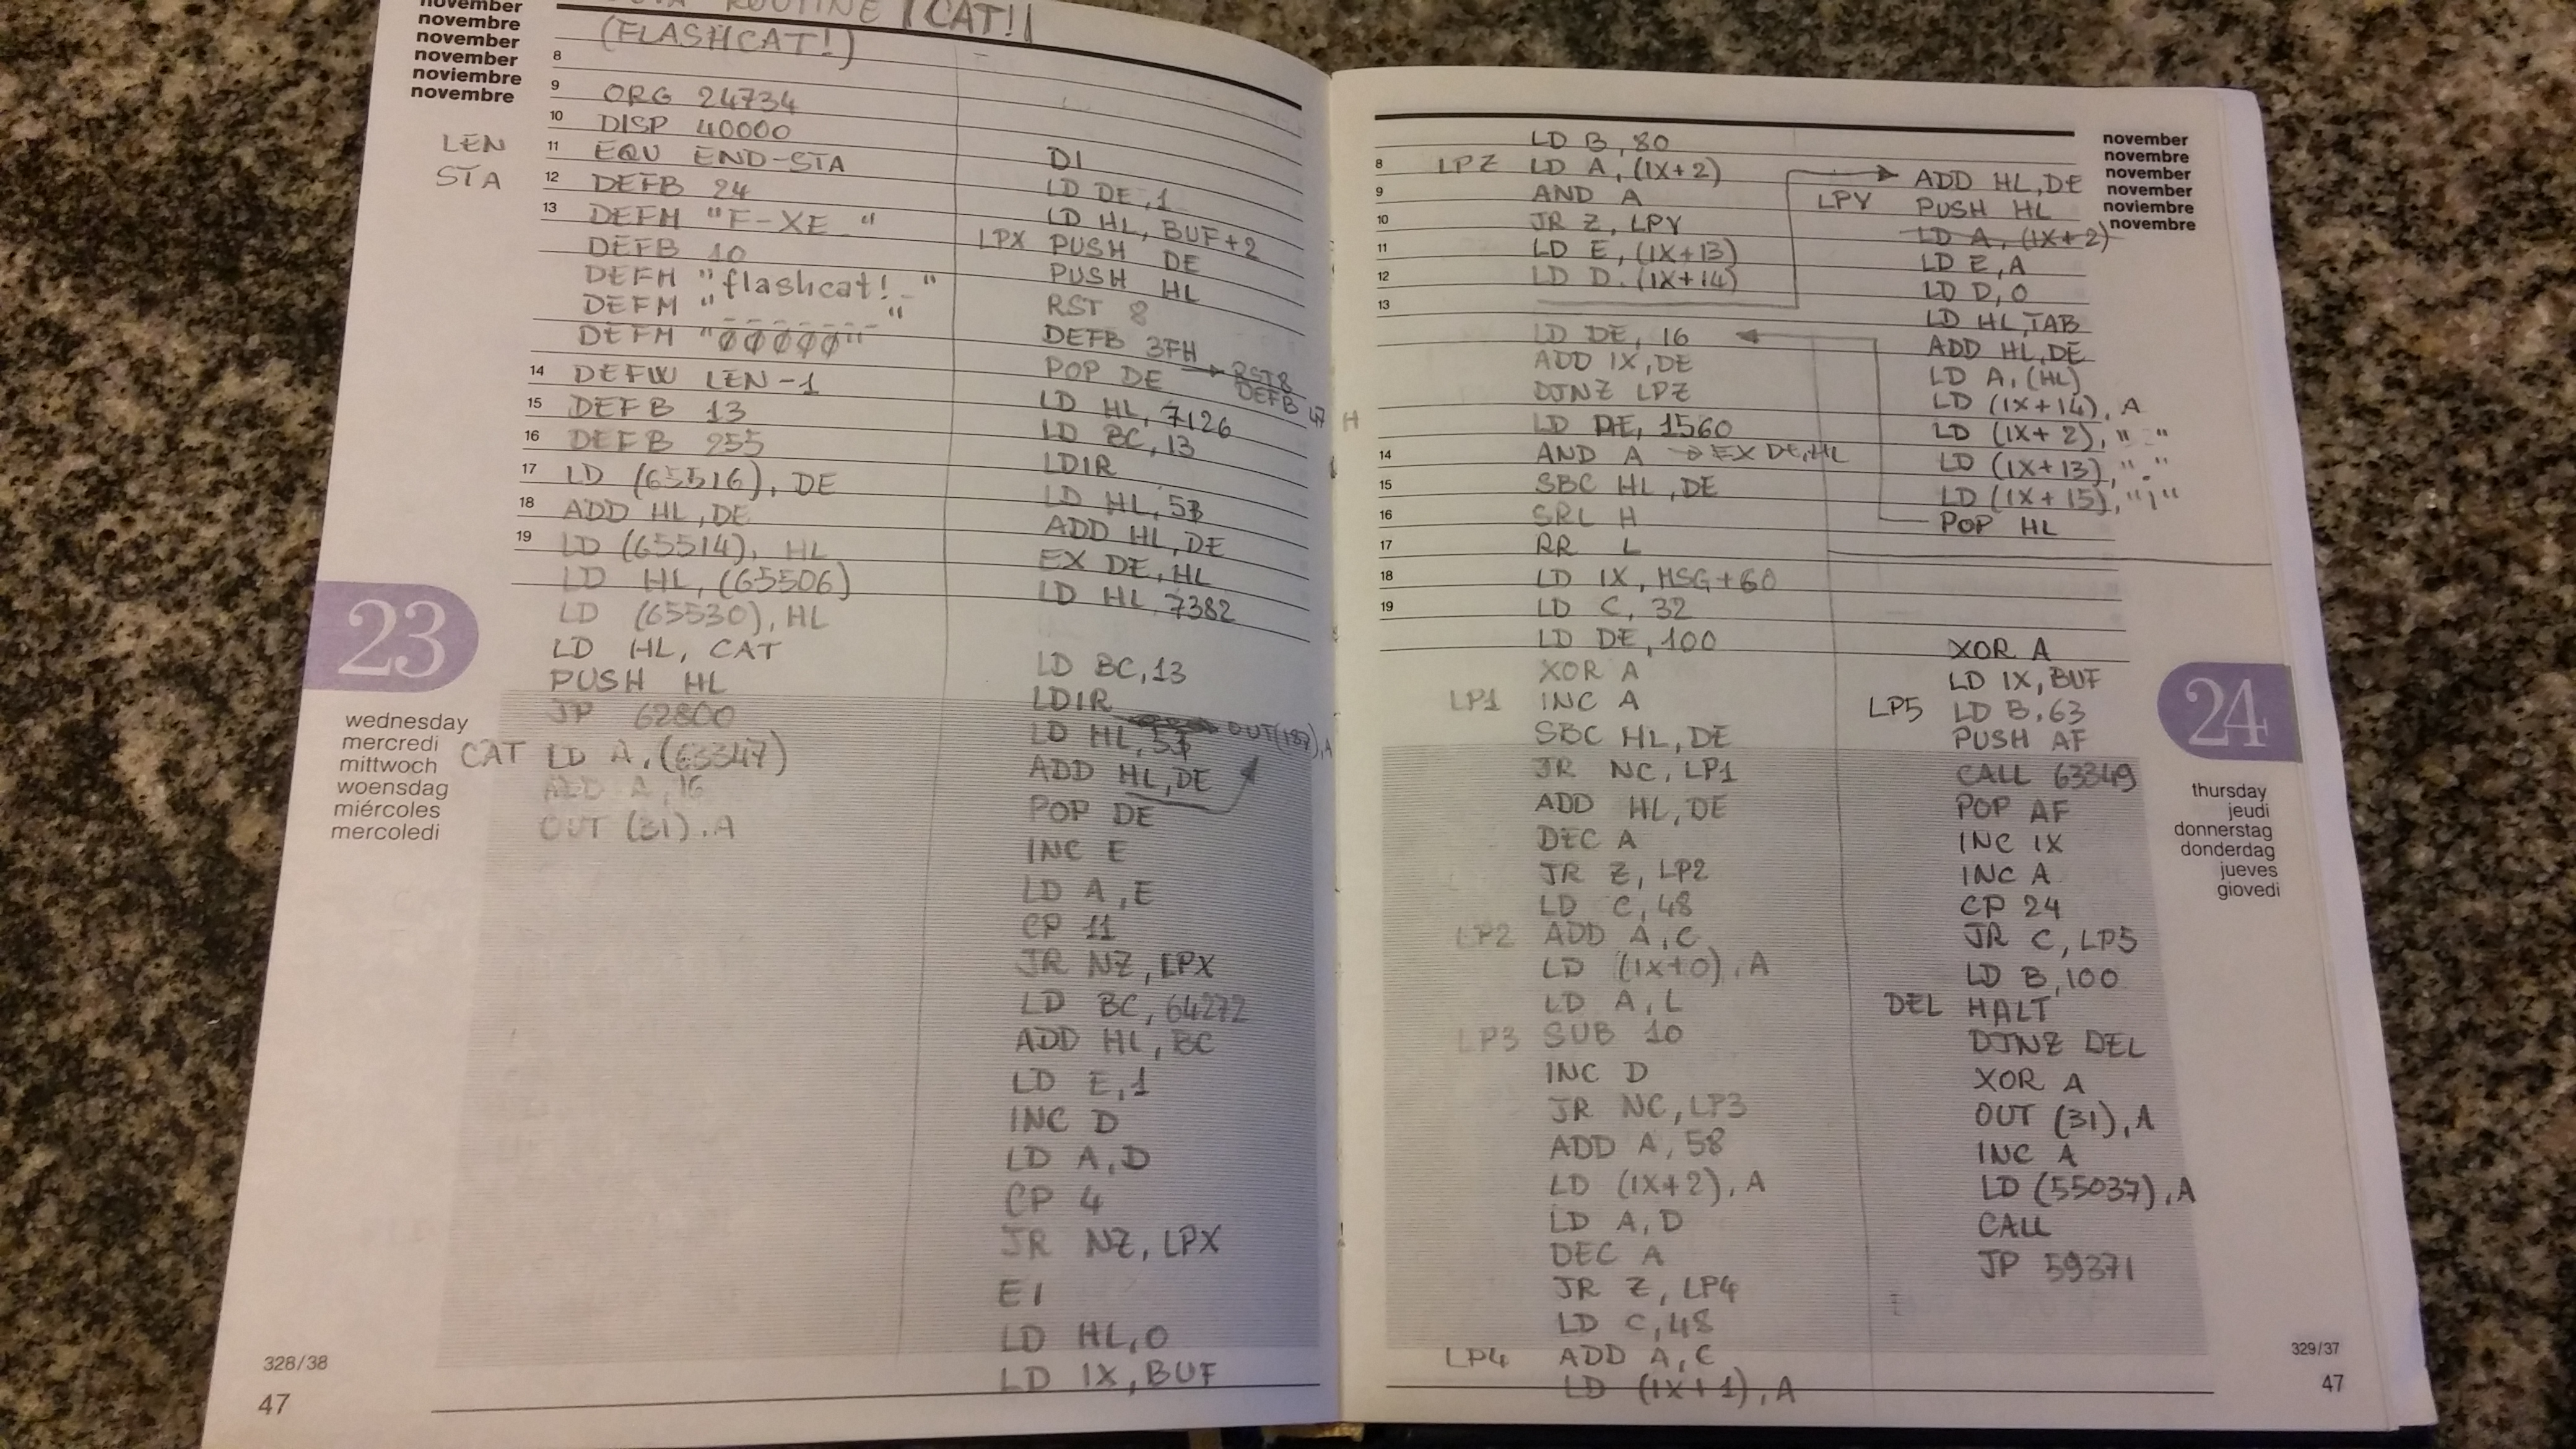 november
novembre
november
november
noviembre
novembre
ROUTINE |CAT!|
(FLASHCAT!)
8
9 ORG 24734
10 DISP 40000
LEN 11 EQU END-STA
STA 12 DEFB 24
13 DEFM "F-XE_"
DEFB 10
DEFM "flashcat!_"
DEFM "_______"
DEFM "ØØØØØ"
14 DEFW LEN-1
15 DEFB 13
16 DEFB 255
17 LD (65516), DE
18 ADD HL, DE
19 LD (65514), HL
LD HL, (65506)
LD (65530), HL
LD HL, CAT
PUSH HL
JP 62800
CAT LD A, (63347)
ADD A, 16
OUT (31), A
DI
LD DE, 1
LD HL, BUF+2
LPX PUSH DE
PUSH HL
RST 8
DEFB 3FH → RST8
DEFB 47H
POP DE
LD HL, 7126
LD BC, 13
LDIR
LD HL, 53
ADD HL, DE
EX DE, HL
LD HL, 7382
LD BC, 13
LDIR
OUT(187), A
LD HL, 53
ADD HL, DE
POP DE
INC E
LD A, E
CP 11
JR NZ, LPX
LD BC, 64272
ADD HL, BC
LD E, 1
INC D
LD A, D
CP 4
JR NZ, LPX
EI
LD HL, 0
LD IX, BUF
23
wednesday
mercredi
mittwoch
woensdag
miércoles
mercoledi
328/38
47
LD B, 80
8 LPZ LD A, (IX+2)
9 AND A
10 JR Z, LPY
11 LD E, (IX+13)
12 LD D, (IX+14)
13
LD DE, 16
ADD IX, DE
DJNZ LPZ
LD DE, 1560
14 AND A → EX DE, HL
15 SBC HL, DE
16 SRL H
17 RR L
18 LD IX, MSG+60
19 LD C, 32
LD DE, 100
XOR A
LP1 INC A
SBC HL, DE
JR NC, LP1
ADD HL, DE
DEC A
JR Z, LP2
LD C, 48
LP2 ADD A, C
LD (IX+0), A
LD A, L
LP3 SUB 10
INC D
JR NC, LP3
ADD A, 58
LD (IX+2), A
LD A, D
DEC A
JR Z, LP4
LD C, 48
LP4 ADD A, C
LD (IX+1), A
ADD HL, DE
LPY PUSH HL
LD A, (IX+2)
LD E, A
LD D, 0
LD HL, TAB
ADD HL, DE
LD A, (HL)
LD (IX+14), A
LD (IX+2), "_"
LD (IX+13), "."
LD (IX+15), "¡"
POP HL
XOR A
LD IX, BUF
LP5 LD B, 63
PUSH AF
CALL 63349
POP AF
INC IX
INC A
CP 24
JR C, LP5
LD B, 100
DEL HALT
DJNZ DEL
XOR A
OUT (31), A
INC A
LD (55037), A
CALL
JP 59371
november
novembre
november
november
noviembre
novembre
24
thursday
jeudi
donnerstag
donderdag
jueves
giovedi
329/37
47